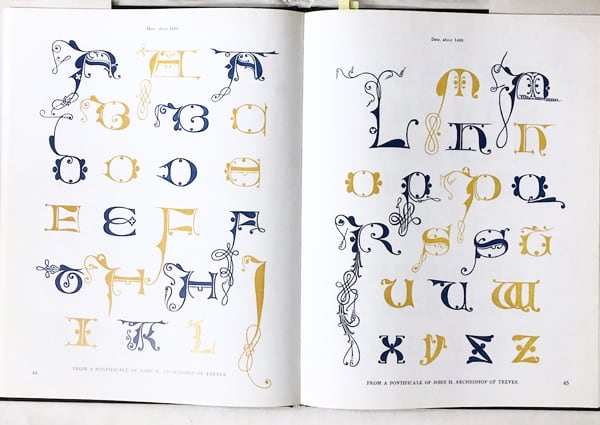 Date, about
A A A
B B
E E F F
G H H I
I K L
44
FROM A PONTIFICALE OF JOHN II. ARCHBISHOP OF TREVES.
Date, about
L M M
N N
O P P Q
R S S
U U W
X Y Z
FROM A PONTIFICALE OF JOHN II. ARCHBISHOP OF TREVES.
45